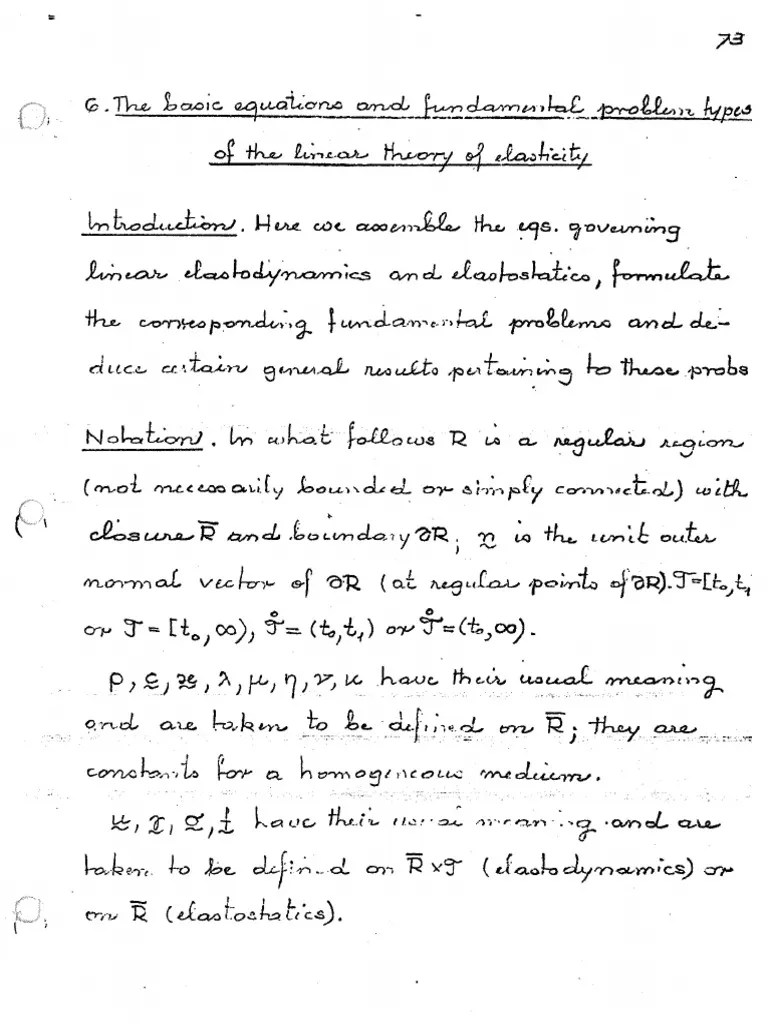 73
6. The basic equations and fundamental problem types
of the linear theory of elasticity
Introduction. Here we assemble the eqs. governing
linear elastodynamics and elastostatics, formulate
the corresponding fundamental problems and de-
duce certain general results pertaining to these probs
Notation. In what follows R is a regular region
(not necessarily bounded or simply connected) with
closure R̅ and boundary ∂R; n̰ is the unit outer
normal vector of ∂R (at regular points of ∂R). 𝒯=[t₀,t₁
or 𝒯=[t₀,∞), 𝒯̊=(t₀,t₁) or 𝒯̊=(t₀,∞).
have their usual meaning
and are taken to be defined on R̅; they are
constants for a homogeneous medium.
have their usual meaning and are
taken to be defined on R̅×𝒯 (elastodynamics) or
on R̅ (elastostatics).